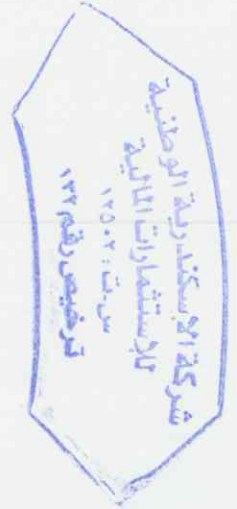 شركة الاسكندرية الوطنية
للإستثمارات المالية
س.ت: ١٢٥٠٢
ترخيص رقم ١٢٢